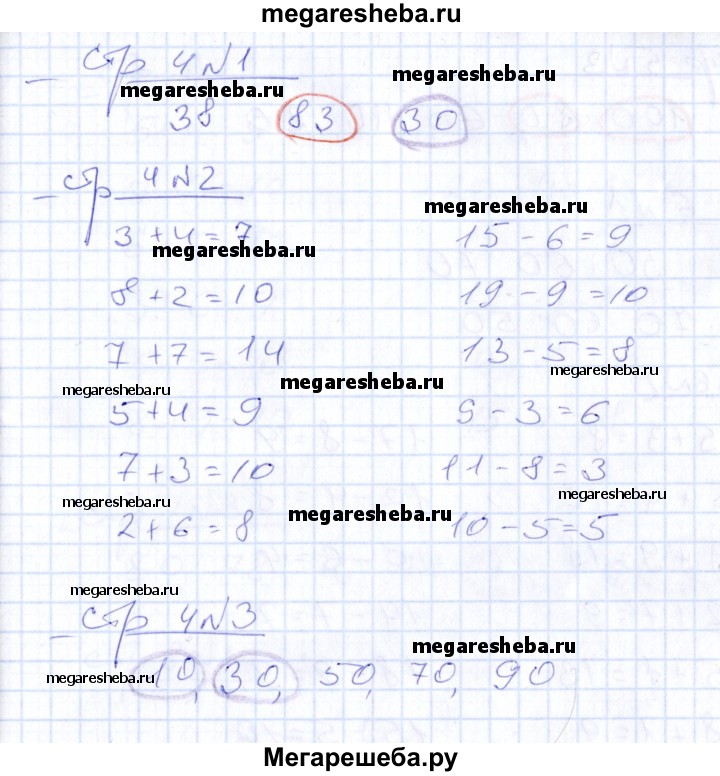 megaresheba.ru
стр 4 N1
megaresheba.ru
megaresheba.ru
38 83 30
стр 4 N2
megaresheba.ru
3 + 4 = 7 15 - 6 = 9
megaresheba.ru
8 + 2 = 10 19 - 9 = 10
7 + 7 = 14 13 - 5 = 8
megaresheba.ru
megaresheba.ru
megaresheba.ru
5 + 4 = 9 9 - 3 = 6
7 + 3 = 10 11 - 8 = 3
megaresheba.ru
megaresheba.ru
megaresheba.ru
2 + 6 = 8 10 - 5 = 5
megaresheba.ru
стр 4 N3
megaresheba.ru
10, 30, 50, 70, 90
megaresheba.ru
Мегарешеба.ру